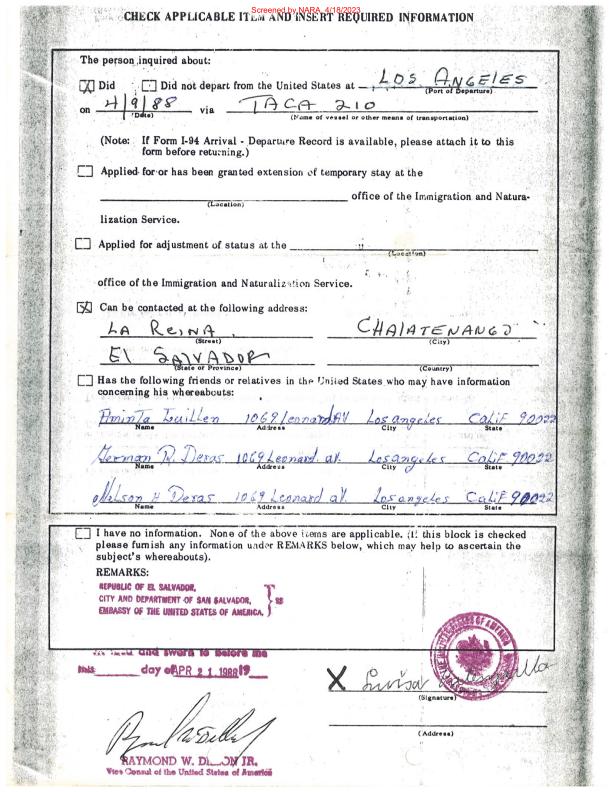 Screened by NARA, 4/18/2023
CHECK APPLICABLE ITEM AND INSERT REQUIRED INFORMATION
The person inquired about:
Did Did not depart from the United States at LOS ANGELES
(Port of Departure)
on 4/9/88 via TACA 210
(Date) (Name of vessel or other means of transportation)
(Note: If Form I-94 Arrival - Departure Record is available, please attach it to this
form before returning.)
Applied for or has been granted extension of temporary stay at the
office of the Immigration and Natura-
(Location)
lization Service.
Applied for adjustment of status at the
(Location)
office of the Immigration and Naturalization Service.
Can be contacted at the following address:
LA REINA CHALATENANGO
(Street) (City)
El SALVADOR
(State or Province) (Country)
Has the following friends or relatives in the United States who may have information
concerning his whereabouts:
Aminta Guillen 1069 Lennard AV Los angeles Calif 90022
Name Address City State
German R. Deras 1069 Leonard. aV. Los angeles Calif 90022
Name Address City State
Nelson H Deras 1069 Leonard aV. Los angeles Calif 90022
Name Address City State
I have no information. None of the above items are applicable. (If this block is checked
please furnish any information under REMARKS below, which may help to ascertain the
subject's whereabouts).
REMARKS:
REPUBLIC OF EL SALVADOR,
CITY AND DEPARTMENT OF SAN SALVADOR, } SS
EMBASSY OF THE UNITED STATES OF AMERICA.
and sworn to before me
this day of APR 21 1988 19
X Luisa
(Signature)
(Address)
RAYMOND W. JR.
Vice Consul of the United States of America